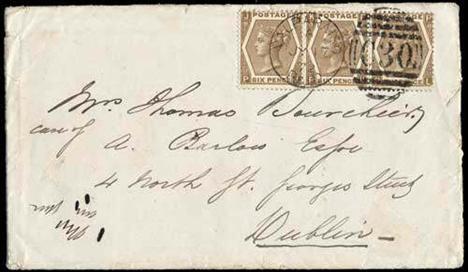 POSTAGE POSTAGE POSTAGE
SIX PENCE SIX PENCE SIX PENCE
C30
Mrs Thomas Bourchier
care of A. Barlow Esqre
4 North Gt. Georges Street
Dublin